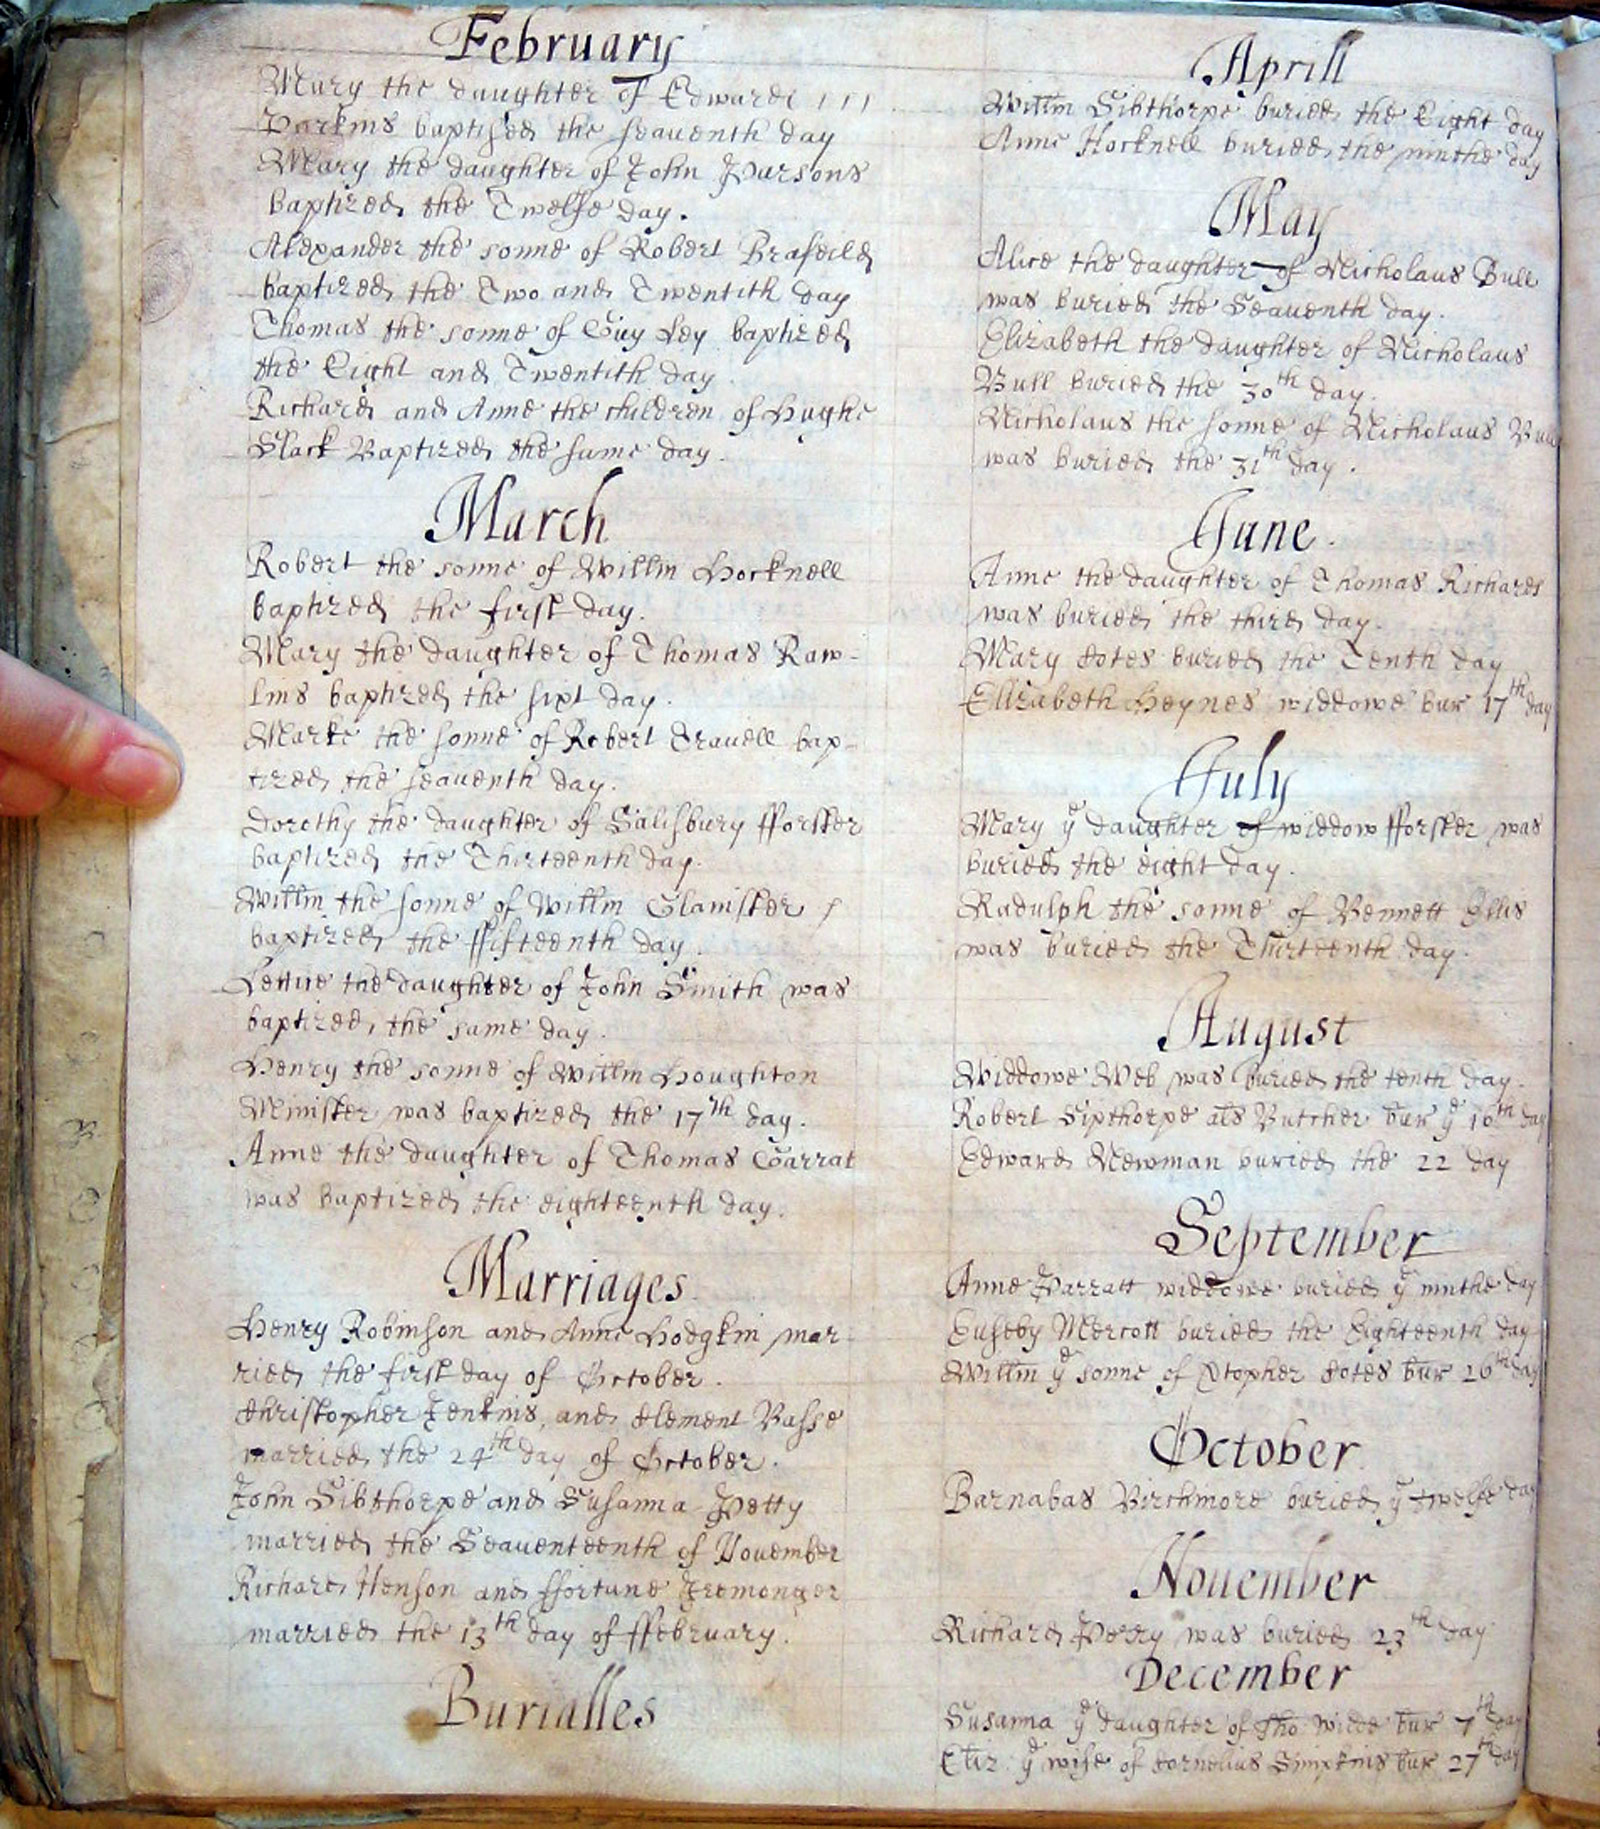 February
Mary the daughter of Edward
Parkins baptised the seaventh day
Mary the daughter of John Parsons
baptized the Twelfe day.
Alexander the sonne of Robert Brafeild
baptized the Two and Twentith day
Thomas the sonne of Guy Ley baptized
the Eight and Twentith day
Richard and Anne the children of Hughe
Slack Baptized the same day.
March
Robert the sonne of Willm Hocknell
baptized the first day.
Mary the daughter of Thomas Raw-
lins baptized the sixt day.
Marke the sonne of Robert Travell bap-
tized the seaventh day.
Dorothy the daughter of Salisbury fforster
baptized the Thirteenth day.
Willm the sonne of Willm Glanister
baptized the ffifteenth day.
Lettice the daughter of John Smith was
baptized the same day.
Henry the sonne of Willm Houghton
Minister was baptized the 17th day.
Anne the daughter of Thomas Garrat
was baptized the eighteenth day.
Marriages
Henry Robinson and Anne Hodgkin mar-
ried the first day of October.
Christopher Jenkins, and Clement Basse
married the 24th day of October.
John Sibthorpe and Susanna Petty
married the Seauenteenth of Nouember
Richard Henson and ffortune Iremonger
married the 13th day of ffebruary.
Burialles
Aprill
Willm Sibthorpe buried the Eight day
Anne Hocknell buried the ninthe day
May
Alice the daughter of Nicholaus Bull
was buried the Seauenth day.
Elizabeth the daughter of Nicholaus
Bull buried the 30th day.
Nicholaus the sonne of Nicholaus Bull
was buried the 31th day.
June.
Anne the daughter of Thomas Richards
was buried the third day.
Mary Cotes buried the Tenth day
Elizabeth Heynes widdowe bur 17th day
July
Mary ye daughter of widdow fforster was
buried the eight day.
Radulph the sonne of Bennett Ellis
was buried the Thirteenth day.
August
Widdowe Web was buried the tenth day.
Robert Sipthorpe als Butcher bur ye 16th day
Edward Newman buried the 22 day
September
Anne Parratt widdowe buried ye ninthe day
Euseby Mercott buried the Eighteenth day
Willm ye sonne of Xtopher Cotes bur 26th day
October
Barnabas Birchmore buried ye twelfe day
Nouember
Richard Perry was buried 23th day
December
Susanna ye daughter of Tho Wilde bur 7th day
Eliz ye wife of Cornelius Simpkins bur 27th day